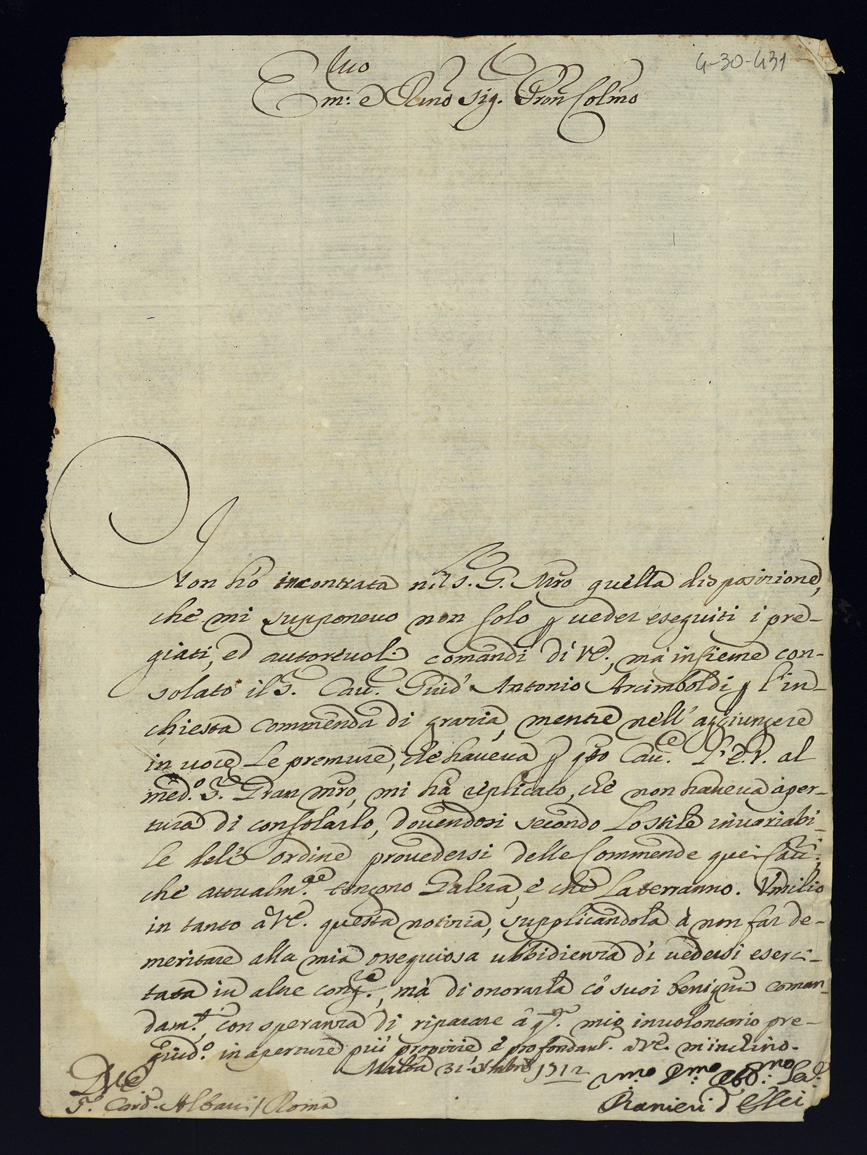 4-30-431
Em:º e Rmo Sig. Pron Colmo
Non hò incontrata nel S. G. Mro quella disposizione,
che mi supponevo non solo p veder eseguiti i pre-
giati, ed autorevoli comandi di VE., mà insieme con-
solato il S. Cav.e Guid' Antonio Arcimboldi p l'in-
chiesta commenda di grazia, mentre nell'aggiungere
in voce le premure, che haveva p qto Cav.e l'E.V. al
med.º S. Gran Mro, mi hà replicato, che non haveva aper-
tura di consolarlo, dovendosi secondo lo stile invariabi-
le dell'ordine provedersi delle Commende quei Cav.i,
che attualm.te tengono Galera, e che la terranno. Umilio
in tanto à VE. questa notizia, supplicandola à non far de-
meritare alla mia ossequiosa ubbidienza di vedersi eserci-
tata in altre cong.e, mà di onorarla cò suoi benigni coman-
dam.ti, con speranza di riparare à q.to mio involontario pre-
giud.º in aperture più propizie e profondam.te à VE. m'inchino.
Malta 31 Xbre 1712
VE
S. Card. Albani / Roma
Umo Dmo Obb.mo Se.r
Ranieri d'Elci